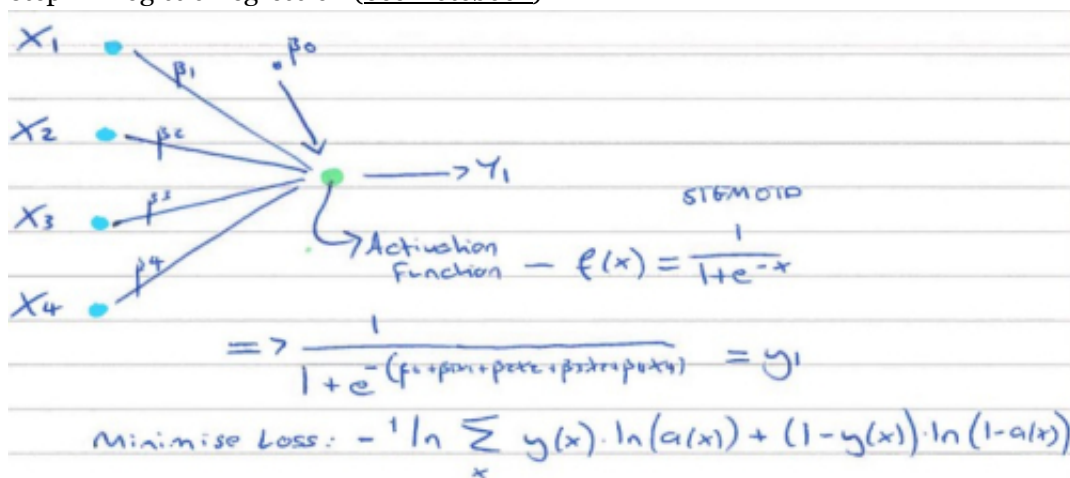 X1
β0
β1
X2
β2
→ Y1
X3
β3
SIGMOID
Activation
Function — f(x) = 1/(1+e^-x)
β4
X4
=> 1/(1+e^-(β0+β1x1+β2x2+β3x3+β4x4)) = y1
Minimise Loss: -1/n ∑x y(x)·ln(a(x)) + (1-y(x))·ln(1-a(x))